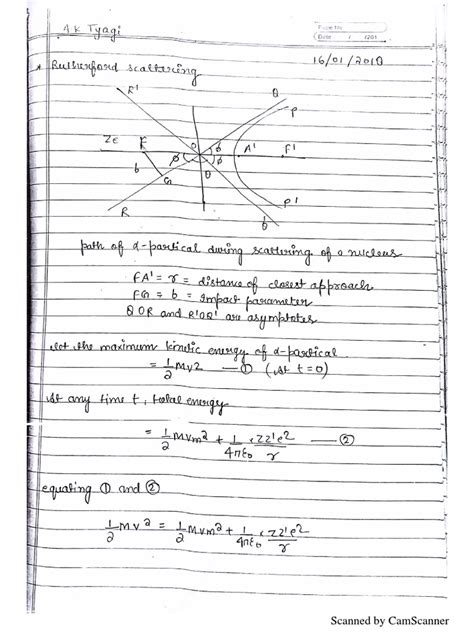 AK Tyagi
Page No.
Date / /201
16/01/2018
* Rutherford scattering
R' Q P
Ze F O ϕ ϕ A' F'
b ϕ G θ
R Q' P'
path of α-partical during scattering of a nucleus
FA' = r = distance of closest approach
FG = b = Impact parameter
QOR and R'OQ' are asymptotes
let the maximum kinetic energy of α-partical
= 1/2 Mv2 — ① (at t=0)
At any time t, total energy
= 1/2 Mvm² + 1/4πε₀ × ZZ'e²/r — ②
equating ① and ②
1/2 Mv² = 1/2 Mvm² + 1/4πε₀ × ZZ'e²/r
Scanned by CamScanner